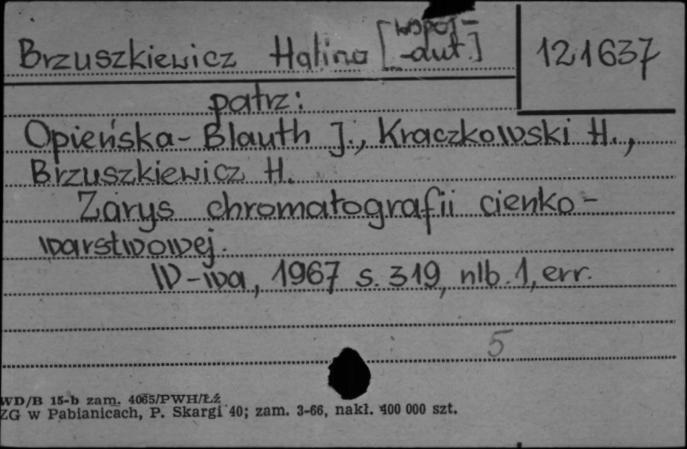 Brzuszkiewicz Halina [współ-
-aut.]
121637
patrz:
Opieńska-Blauth J., Kraczkowski H.,
Brzuszkiewicz H.
Zarys chromatografii cienko-
warstwowej.
W-wa, 1967 s. 319, nlb. 1, err.
5
WD/B 15-b zam. 4065/PWH/Łź
ZG w Pabianicach, P. Skargi 40; zam. 3-66, nakł. 400 000 szt.